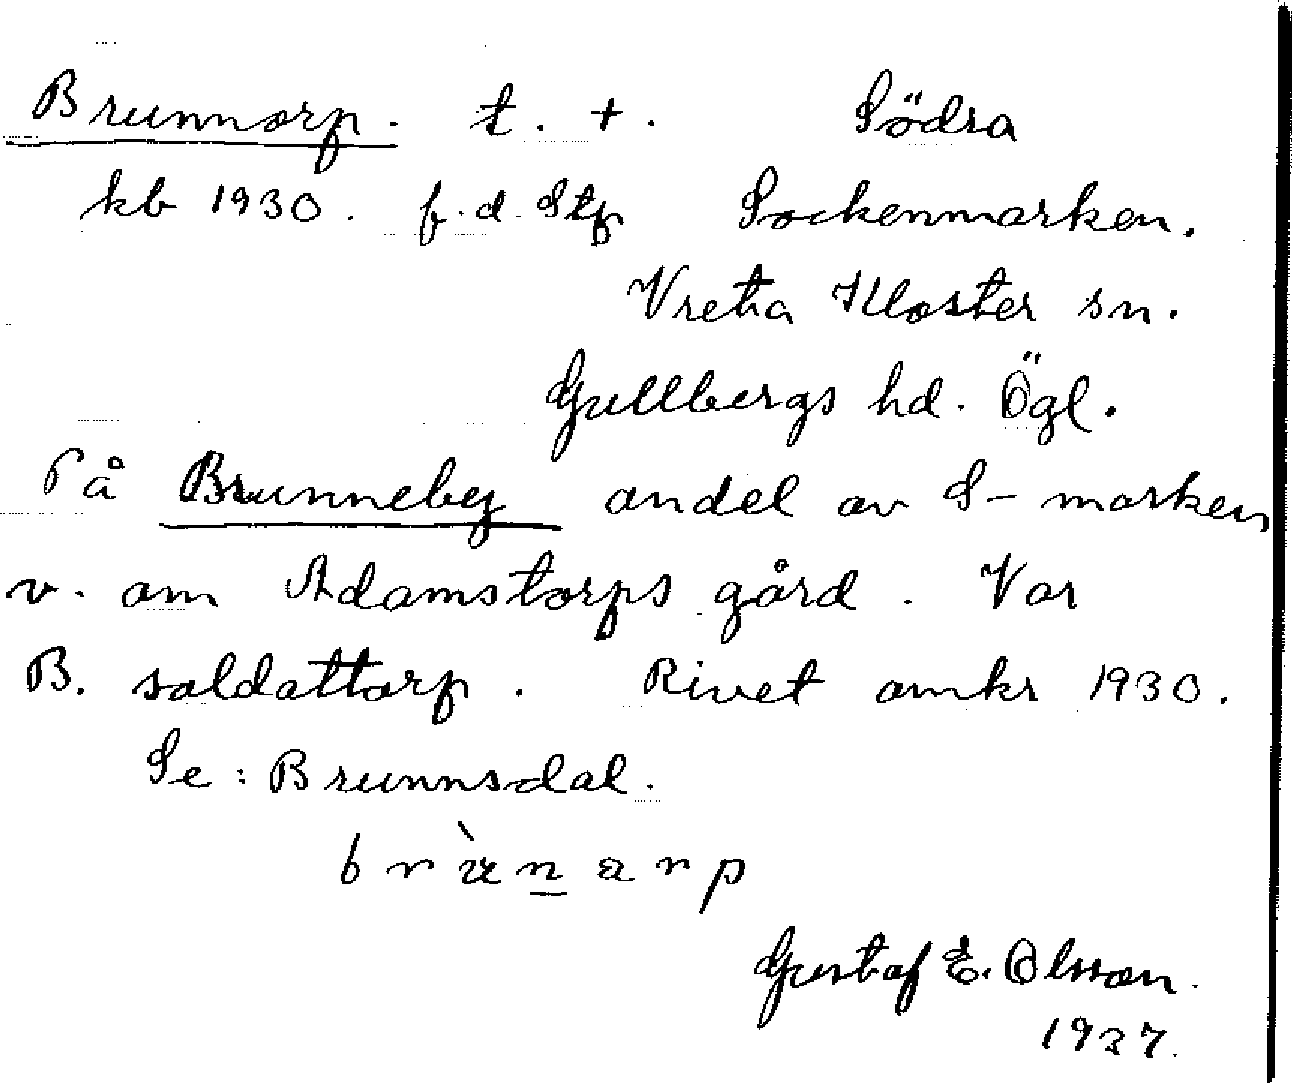 Brunnorp. t. +. Södra
kb 1930. f.d. Stp Sockenmarken.
Vreta Kloster sn.
Gullbergs hd. Ögl.
På Brunneby andel av S-marken
v. om Adamstorps gård. Var
B. soldattorp. Rivet omkr 1930.
Se: Brunnsdal.
Gustaf E. Olsson.
1937.